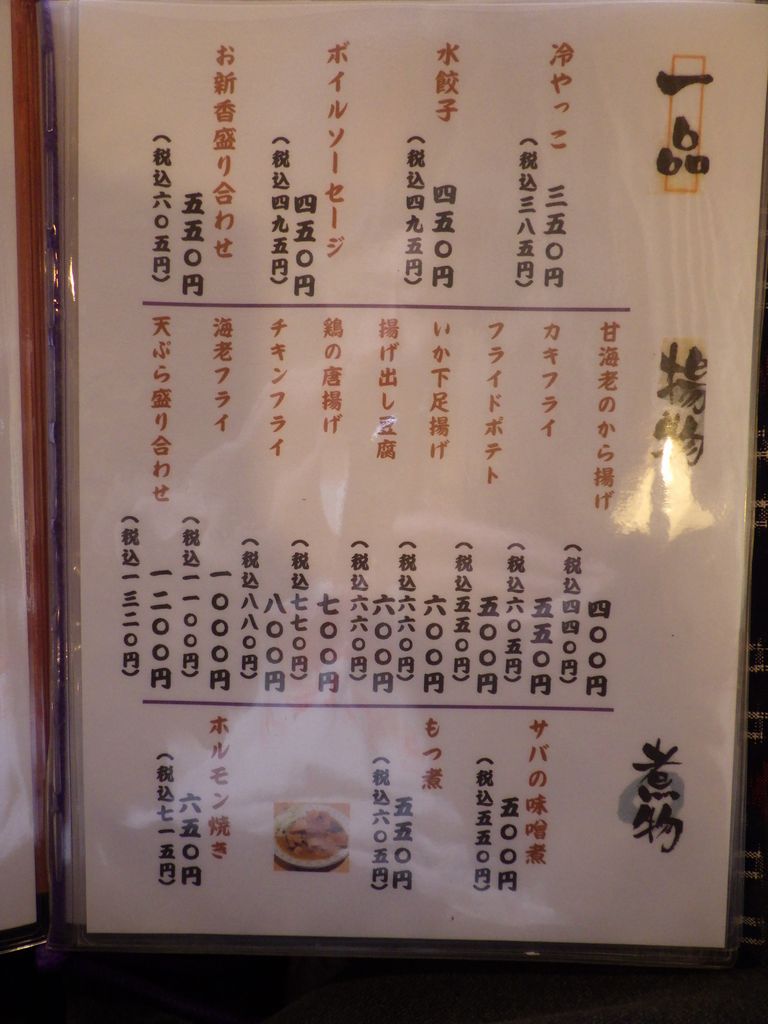 一品
冷やっこ
三五〇円
(税込三八五円)
水餃子
四五〇円
(税込四九五円)
ボイルソーセージ
四五〇円
(税込四九五円)
お新香盛り合わせ
五五〇円
(税込六〇五円)
揚物
甘海老のから揚げ
四〇〇円
(税込四四〇円)
カキフライ
五五〇円
(税込六〇五円)
フライドポテト
五〇〇円
(税込五五〇円)
いか下足揚げ
六〇〇円
(税込六六〇円)
揚げ出し豆腐
六〇〇円
(税込六六〇円)
鶏の唐揚げ
七〇〇円
(税込七七〇円)
チキンフライ
八〇〇円
(税込八八〇円)
海老フライ
一〇〇〇円
(税込一一〇〇円)
天ぷら盛り合わせ
一二〇〇円
(税込一三二〇円)
煮物
サバの味噌煮
五〇〇円
(税込五五〇円)
もつ煮
五五〇円
(税込六〇五円)
ホルモン焼き
六五〇円
(税込七一五円)